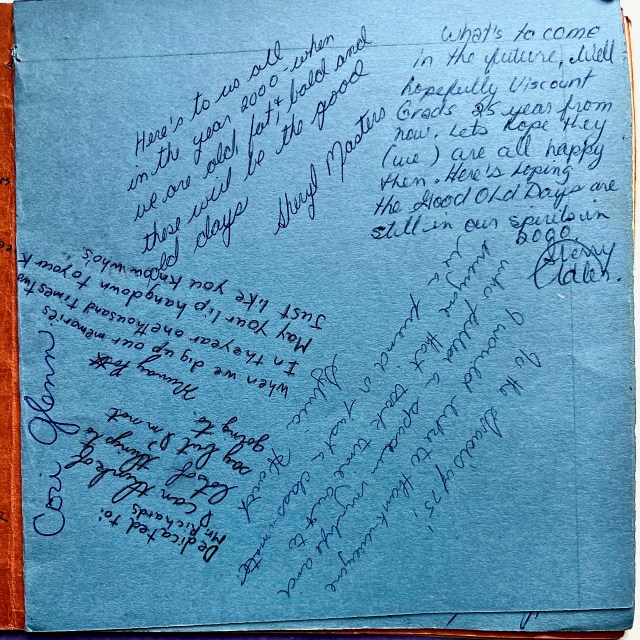 Here's to us all
in the year 2000 when
we are old, fat & bald and
these will be the good
old days
Sheryl Masters
What's to come
in the future, Well
hopefully Viscount
Grads 25 year from
now. Lets hope they
(we) are all happy
then. Here's hoping
the Good Old Days are
still in our spirits in
2000
Elder.
When we dig up our memories
In the year one thousand times two
May your lip hang down to your k
Just like you know who's.
Cori Glenn
Dedicated to:
Mr. Richards
I can think of
lots of things to
say but I'm not
going to.
To the Grad's of 75,
I would like to thank everyone
who filled a space in my life and
everyone that took time out to
be a friend or just a class-mate.